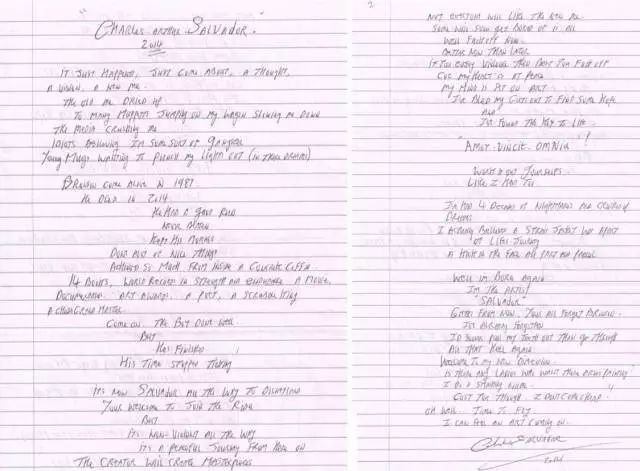 "Charles Arthur Salvador."
2014
It Just Happens, Just come About, A Thought,
A Vision, A New Me.
The old Me Dried up
To Many Muppets Jumping on My Wagon Slowing Me Down
The Media Crushing Me
Idiots Believing I'm Some Sort of Gangster
Young Mugs Waiting To Punch My Lights out (in Their Dreams)
Bronson came Alive in 1987
He Died in 2014
He Had A Good Run
Never Altered
Kept His Morals
Done Alot of Nice Things
Achieved So Much From Inside A Concrete Coffin
14 Books, World Records in Strength and Endurance. A Movie,
Documentarys. Art Awards. A Poet, A
A
Come on. The Boy Done Well.
But
He's Finished
His Time Stopped Ticking
It's Now Salvador All The Way To
Your Welcome To Join The Ride
But
It's Non-Violent All The Way
It's A Peaceful Journey From Here on
The Creator Will Create Masterpieces
2
Not Everyone Will Like The New Me
Some Will Soon Get Bored of it All
Well Fuck off Now.
Better Now Than Later
If You Enjoy Violence Then Don't You Fuck off
Coz My Heart is at Peace
My Mind is Set on Art
I've Bled My Guts out To Find Some Hope
And
I've Found The Key To Life
"Amor Vincit Omnia"!
Wake up Yourselfs
Like I Had Too
I've Had 4 Decades of Nightmares And Crushed
Dreams
I Actually Believe A Strait Jacket Was A Part
of Lifes Journey
A Kick in The Face All Part And Parcel
Well im Born Again
I'm The Artist
"Salvador"
Gotta Front Now. You'll All Forget Bronson
I've Already Forgotten
I'd Sooner Pull My Teeth out Than Go Through
All That Hell Again
Welcome To My New Direction
Is There Any Ladies Who Want Their Bodies Painted?
I Do A Stunning Nude.
Cost You Though. I Dont Come Cheap
Oh Well. Time To Fly
I Can Feel An Art Coming on
Salvador
2014